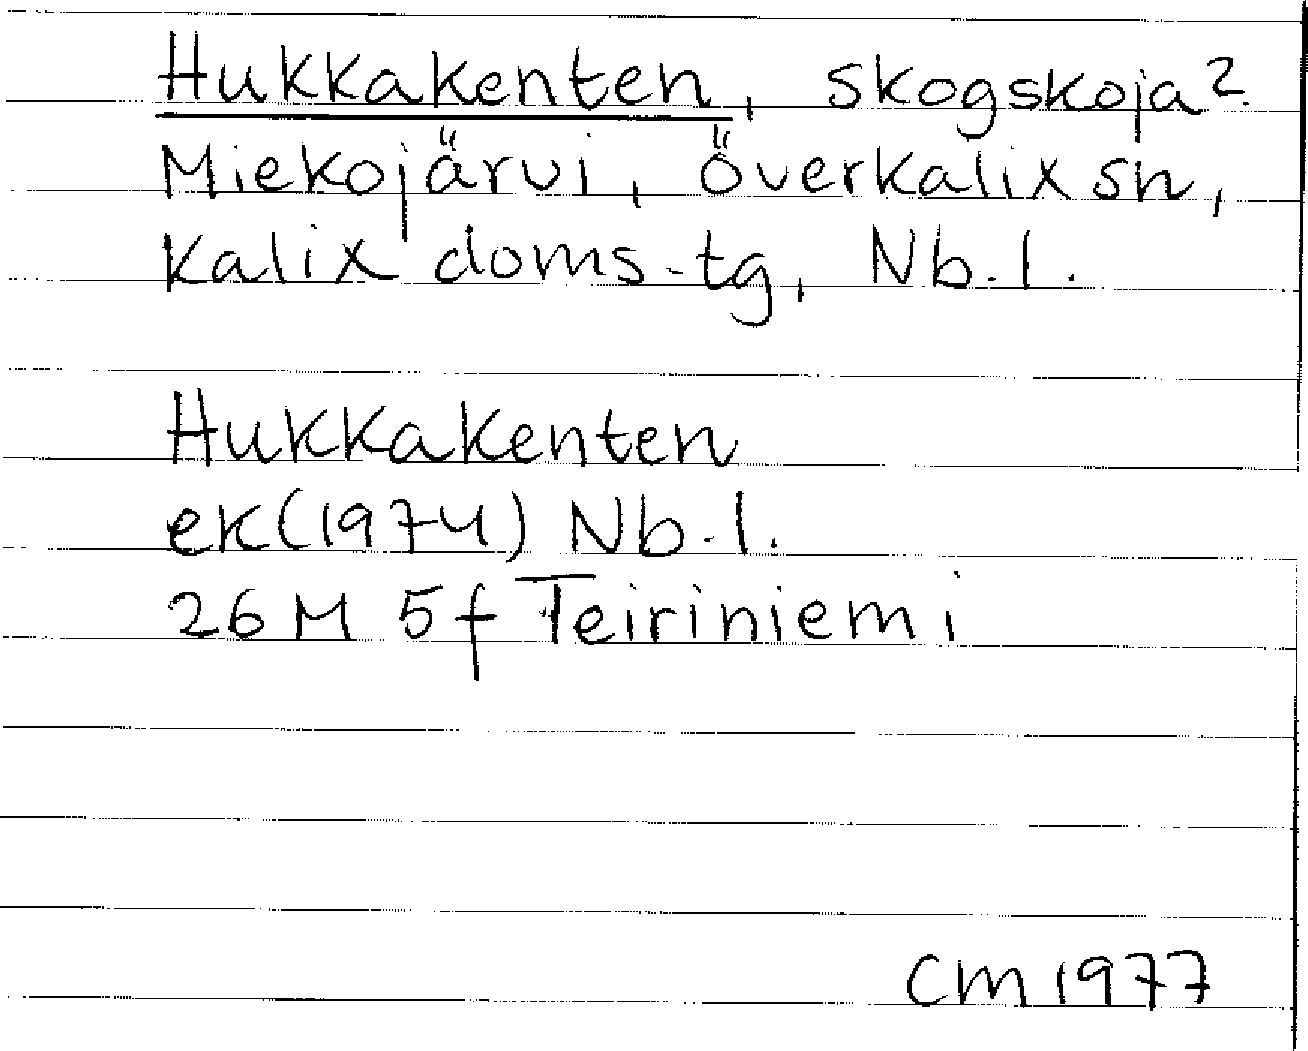 Hukkakenten, skogskoja?
Miekojärvi, Överkalix sn,
Kalix doms.tg, Nb.l.
Hukkakenten
ek(1974) Nb.l.
26 M 5f Teiriniemi
CM 1977